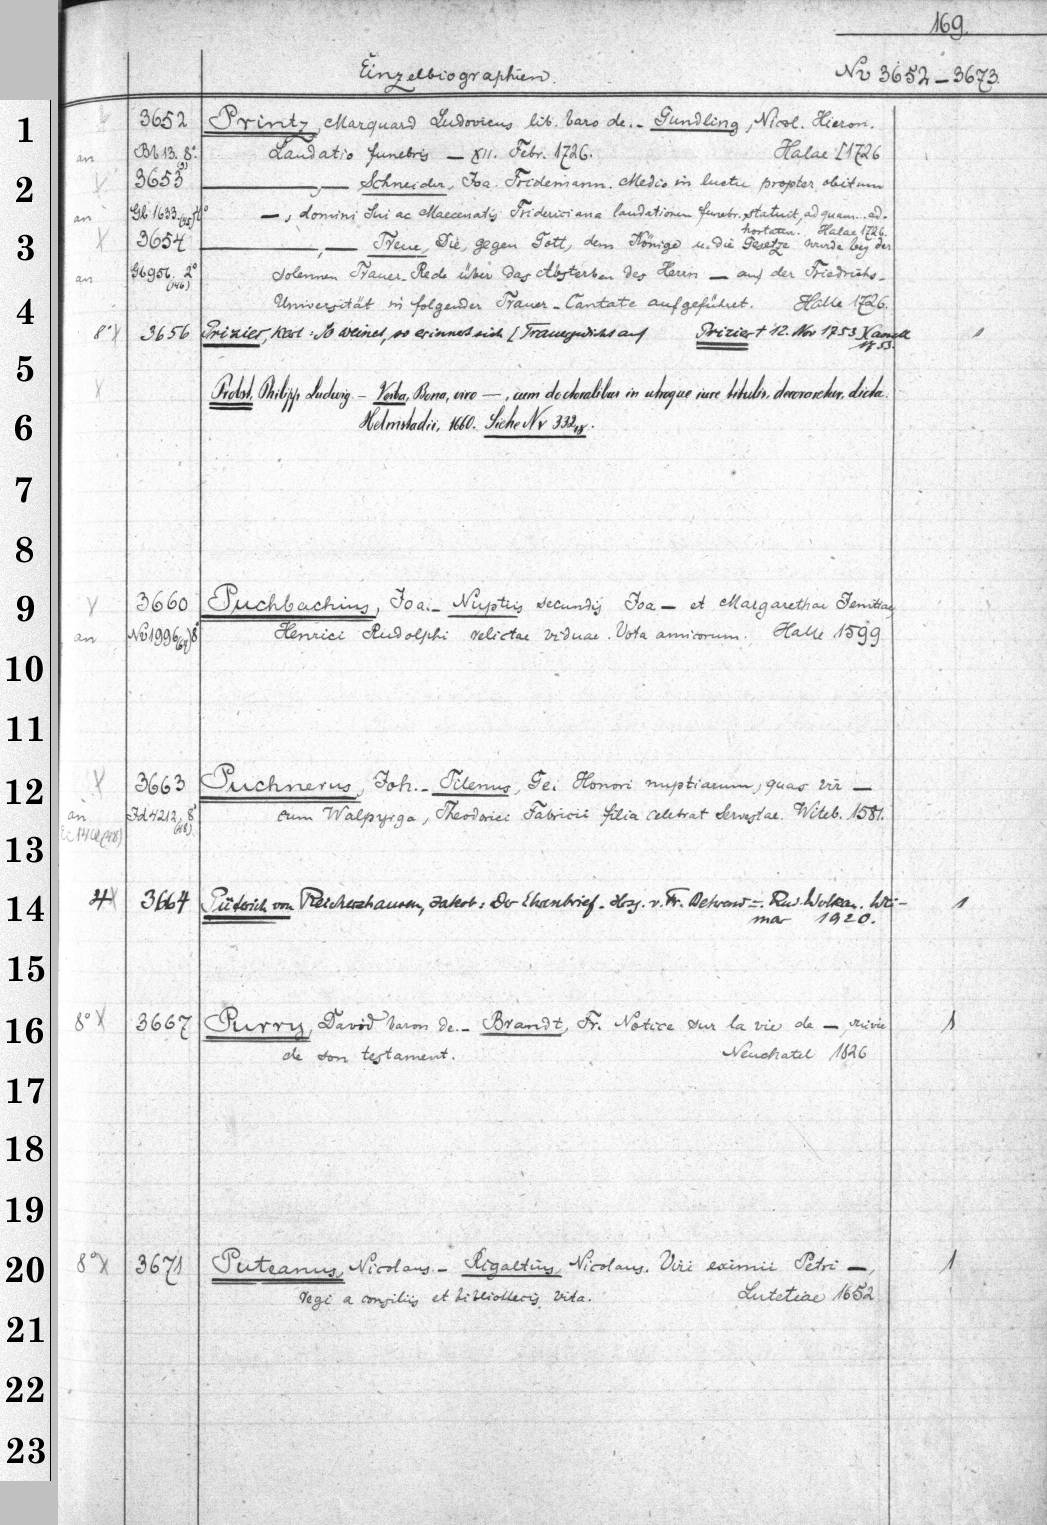 169.
Einzelbiographien. Nv 3652–3673
1 3652 Printz, Marquard Ludovicus lib. baro de.– Gundling, Nicol. Hieron.
an Bb 13. 8°. Laudatio funebris — XII. Febr. 1726. Halae [1726
2 3653 —,— Schneider, Joa. Fridemann. Medio in luctu propter obitum
an Gb 1633 —, domini Sui ac Maecenatis Fridericiana laudationem funebr. statuit, ad quam... ad-
hortatur. Halae 1726.
3 3654 —,— Treue, Die, gegen Gott, dem Könige u. die Gesetze wurde bey der
an Gb 956. 2° (146) solennen Trauer-Rede über das Absterben des Herrn — auf der Friedrichs-
4 Universität in folgender Trauer-Cantate aufgeführet. Halle 1726.
8° 3656 Prizier, Karl: So weinet, so erinnert sich [Trauergedicht auf Prizier † 12. Nov 1753 Kassel
1753.
5 Probst, Philipp Ludwig.– Verba, Bona, viro —, cum doctoralibus in utroque iure titulis. decoraretur, dicta.
6 Helmstadii, 1660. Siehe Nv 332
7
8
9 3660 Puchbachius, Joa.– Nuptiis secundis Joa — et Margarethae
an Nv 1996 8° Henrici Rudolphi relictae viduae. Vota amicorum. Halle 1599
10
11
12 3663 Puchnerus, Joh.– Tilenus, Ge. Honori nuptiarum, quas vir —
an Jd 4212, 8° (48) cum Walpurga, Theodorici Fabricii filia celebrat Servestae. Witeb. 1581.
13
14 4 3664 Püterich von Reicherzhausen, Jakob: Der Ehrenbrief. Hrsg. v. Fr. Behrend u. Rud. Wolkan. Wei-
mar 1920. 1
15
16 8° 3667 Purry, David baron de.– Brandt, Fr. Notice sur la vie de —, suivie 1
de son testament. Neuchatel 1826
17
18
19
20 8° 3671 Puteanus, Nicolaus.– Rigaltius, Nicolaus. Viri eximii Petri —, 1
regi a consiliis et bibliothecis vita. Lutetiae 1652
21
22
23